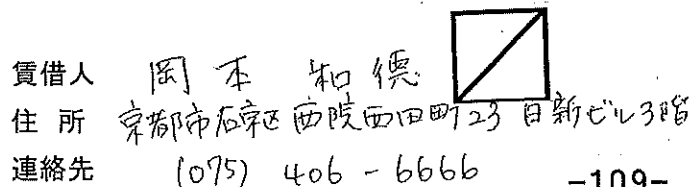 賃借人 岡本 和徳
住所 京都市右京区西院西田町23 日新ビル3階
連絡先 (075) 406-6666
-109-